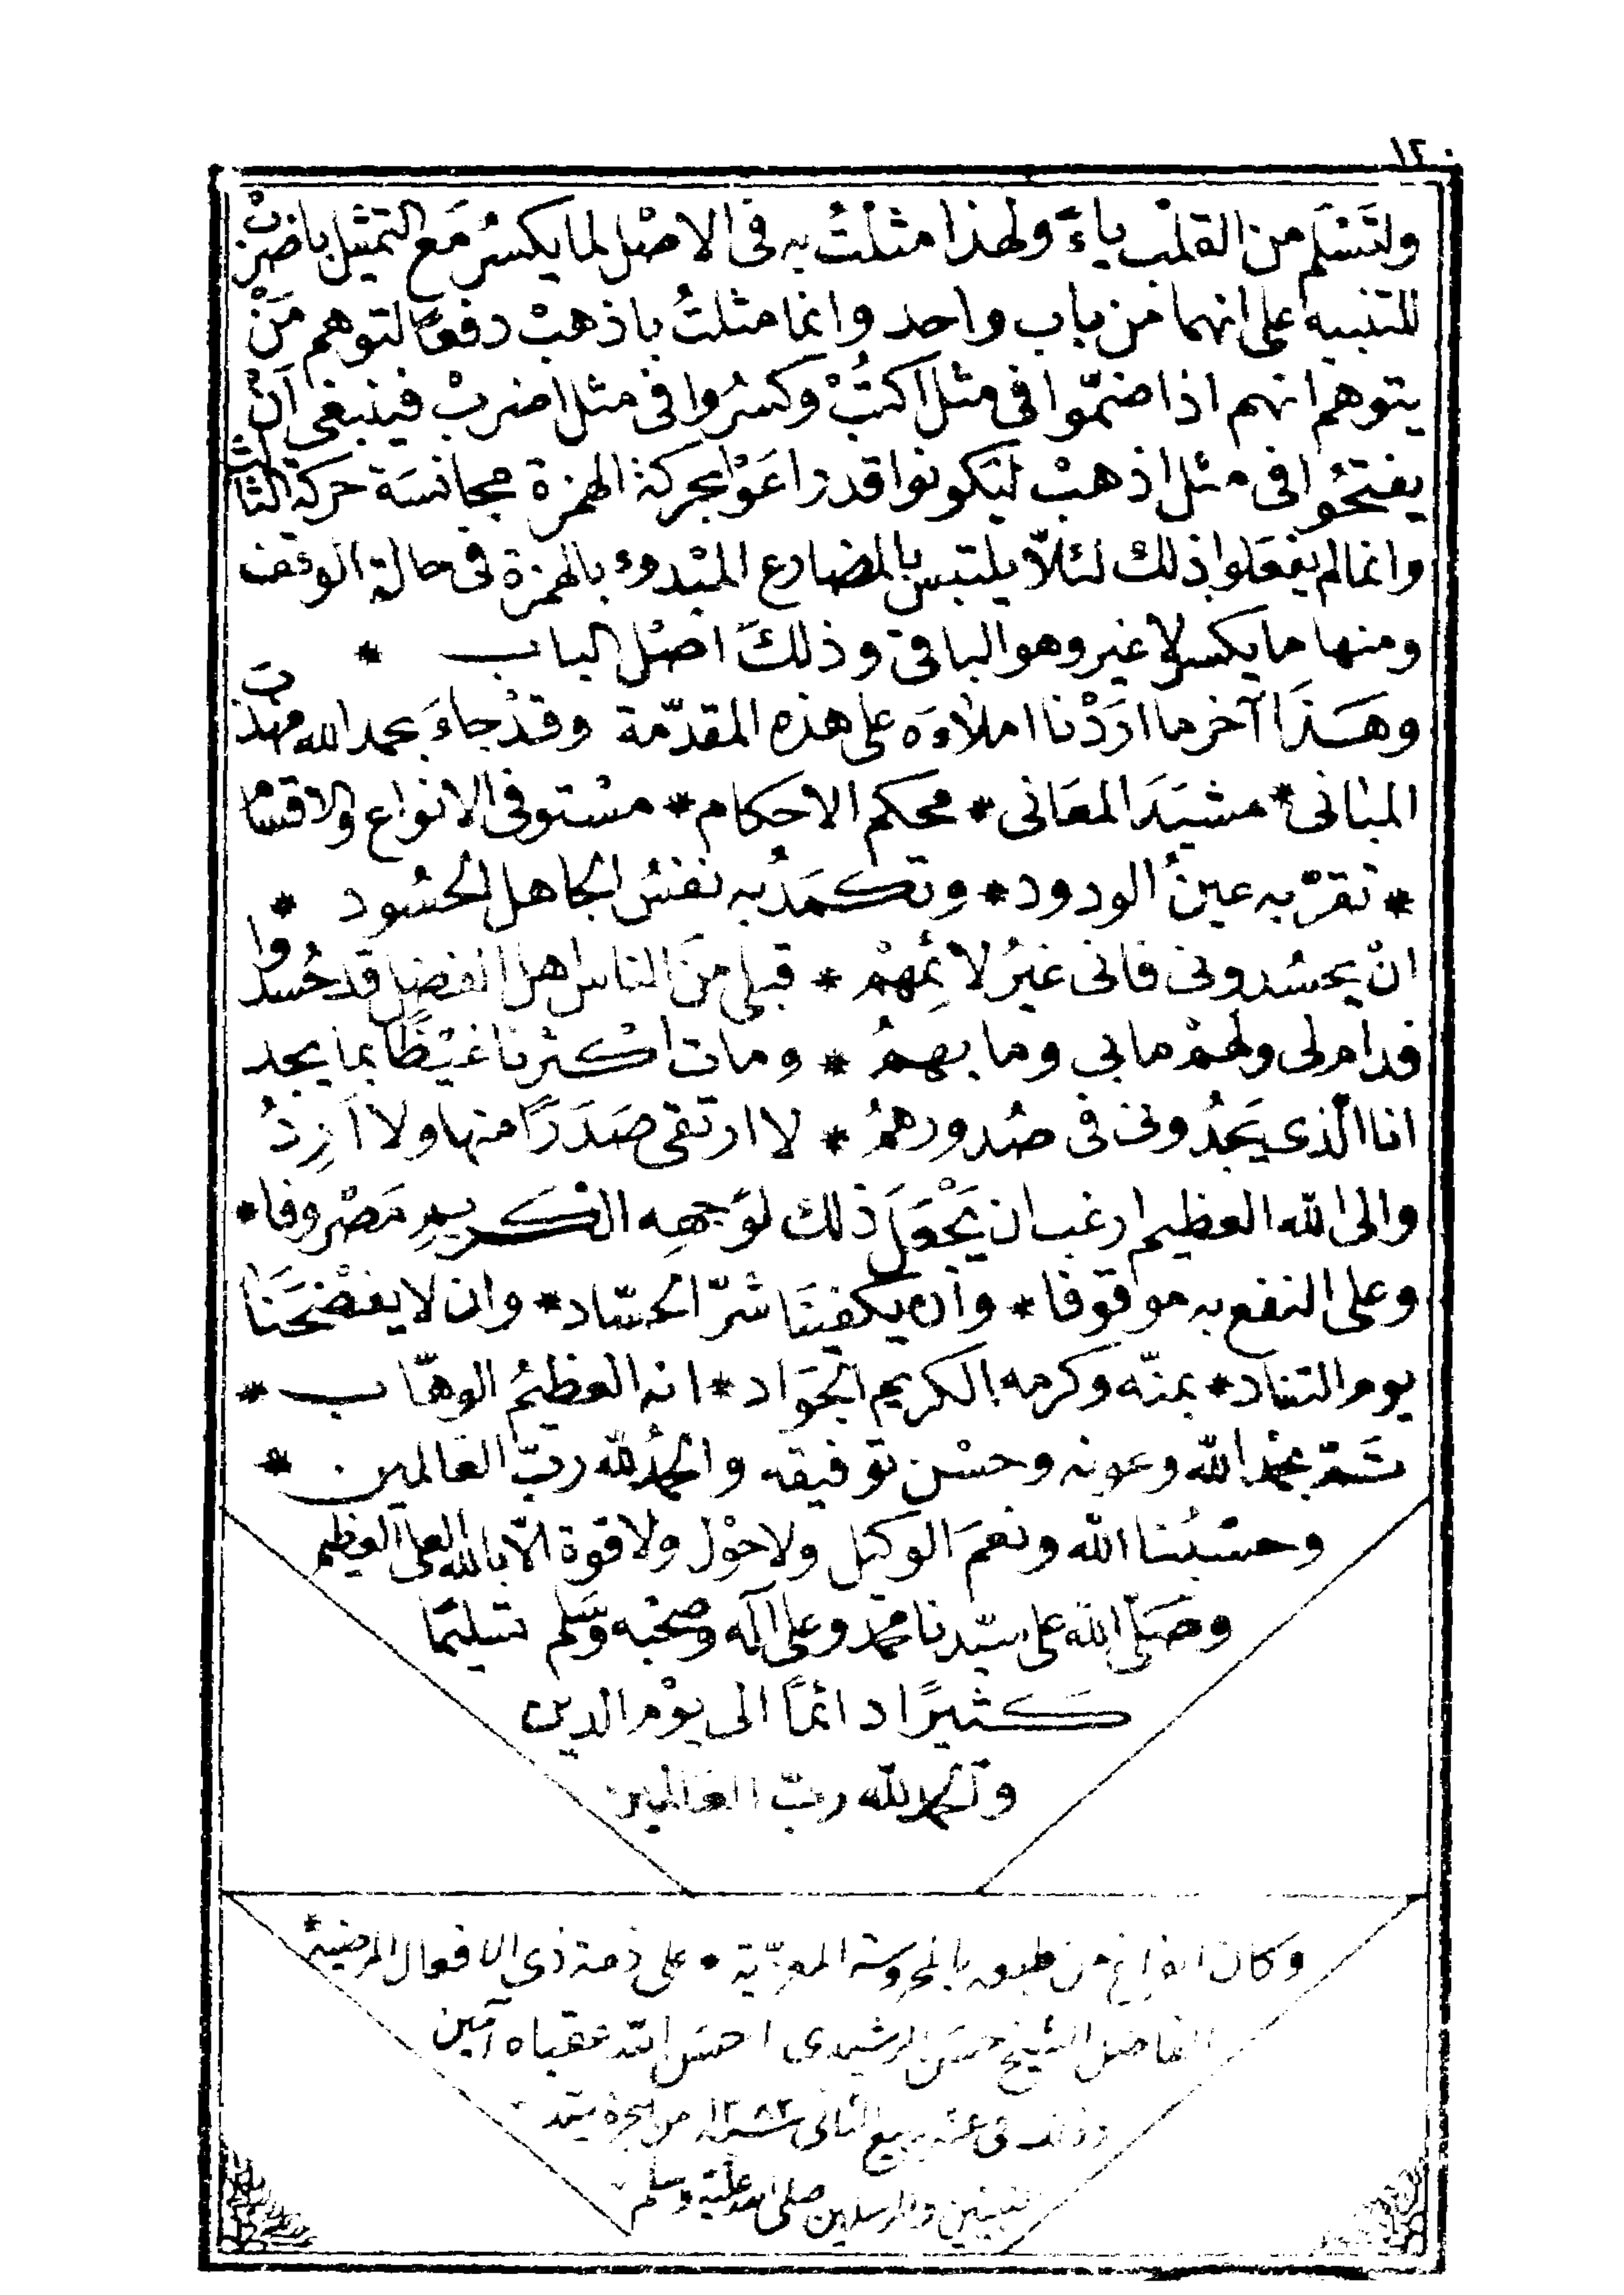 ١٢٠
ولتَسْلَم من القلب ياءً ولهذا مثلتُ به فى الاصْل لما يكسرُ مَع التمثيل باضربْ
للتنبيه على انهما من باب واحد وانما مثلتُ باذهبْ دفعًا لتوهم مَنْ
يتوهم انهم اذا ضمّوا فى مثل اكتُبْ وكسرُوا فى مثل اضربْ فينبغى اَنْ
يفتحُوا فى مثل اذهبْ ليَكونوا قد راعَوْا بحركة الهمزة مجانسَة حركة الثالث
وانما لم يفعَلوا ذلك لئلاّ يلتبس بالمضارع المبْدوء بالهمزة فى حالة الوقف
ومنها ما يكسر لا غير وهو الباقى وذلكَ اصْل الباب *
وهَذَا آخر ما ارَدْنا املاءَه على هذه المقدّمة وقدْ جاءَ بحمد الله مهذبَ
المبانى * مشيَدَ المعَانى * محكم الاحكام * مسْتوفى الانواع والاقسام
* تقرّ به عينُ الودود * وتكمَدُ به نفسُ الجاهل الحسُود *
انْ يحسُدونى فانى غيرُ لائمِهمْ * قبلى منَ الناس اهل الفضل قد حُسدوا
فدام لى ولهمْ ما بى وما بهمُ * ومات اكثرنا غيْظًا بما يجد
انا الّذى يَجدُونى فى صُدورهمُ * لا ارتقى صَدَرًا منها ولا اَرِدُ
والى الله العظيم ارغب ان يَجْعَلَ ذلك لوَجهِه الكَريمِ مَصْروفا *
وعلى النفع به موقوفا * وان يكفيَنا شرّ الحسّاد * وان لا يفضَحَنَا
يوم التناد * بمنّه وكرمه الكريم الجَوَاد * انه العظيمُ الوهّاب *
تَمّ بحمد الله وعونه وحسْن توفيقه والحمدُ لله ربّ العَالمين *
وحسْبُنا الله ونعمَ الوكيل ولا حوْل ولا قوة الّا بالله العلى العظيم
وصَلّى الله على سيّدنا محمد وعلى آله وصحْبه وسَلم تسليمًا
كَثيرًا دائمًا الى يوْم الدين
والحمد لله ربّ العَالمين
وكان الفراغ من طبعه بالمحروسة المعزّية * على ذمة ذى الافعال المرضية *
الفاضل الشيخ حسَن الرشيدى احسَن الله عقباه آمين
وذلك فى ربيع الثانى سنة ١٢٨٢ من هجرة سيد
النبيين والمرسلين صلى الله عليه وسلم